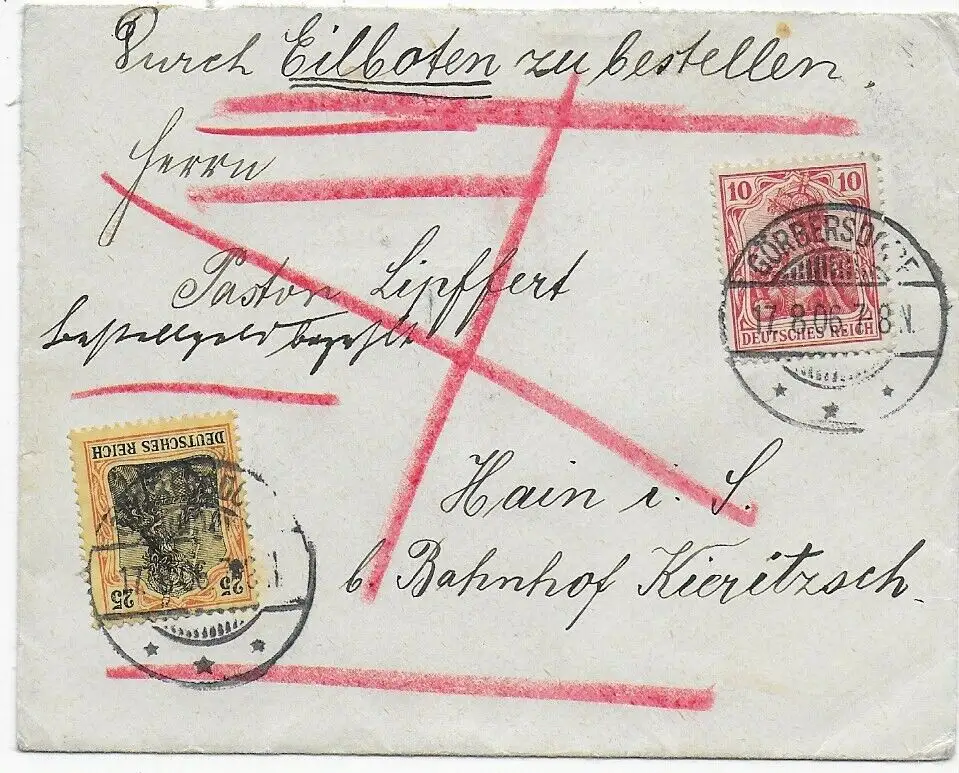 Durch Eilboten zu bestellen.
Herrn
10 10
GÖRBERSDORF
Pastor Lipffert
17.8.06.7-8N.
DEUTSCHES REICH
bestellgeld bezahlt
DEUTSCHES REICH
Hain i. S.
25 25
b. Bahnhof Kieritzsch.